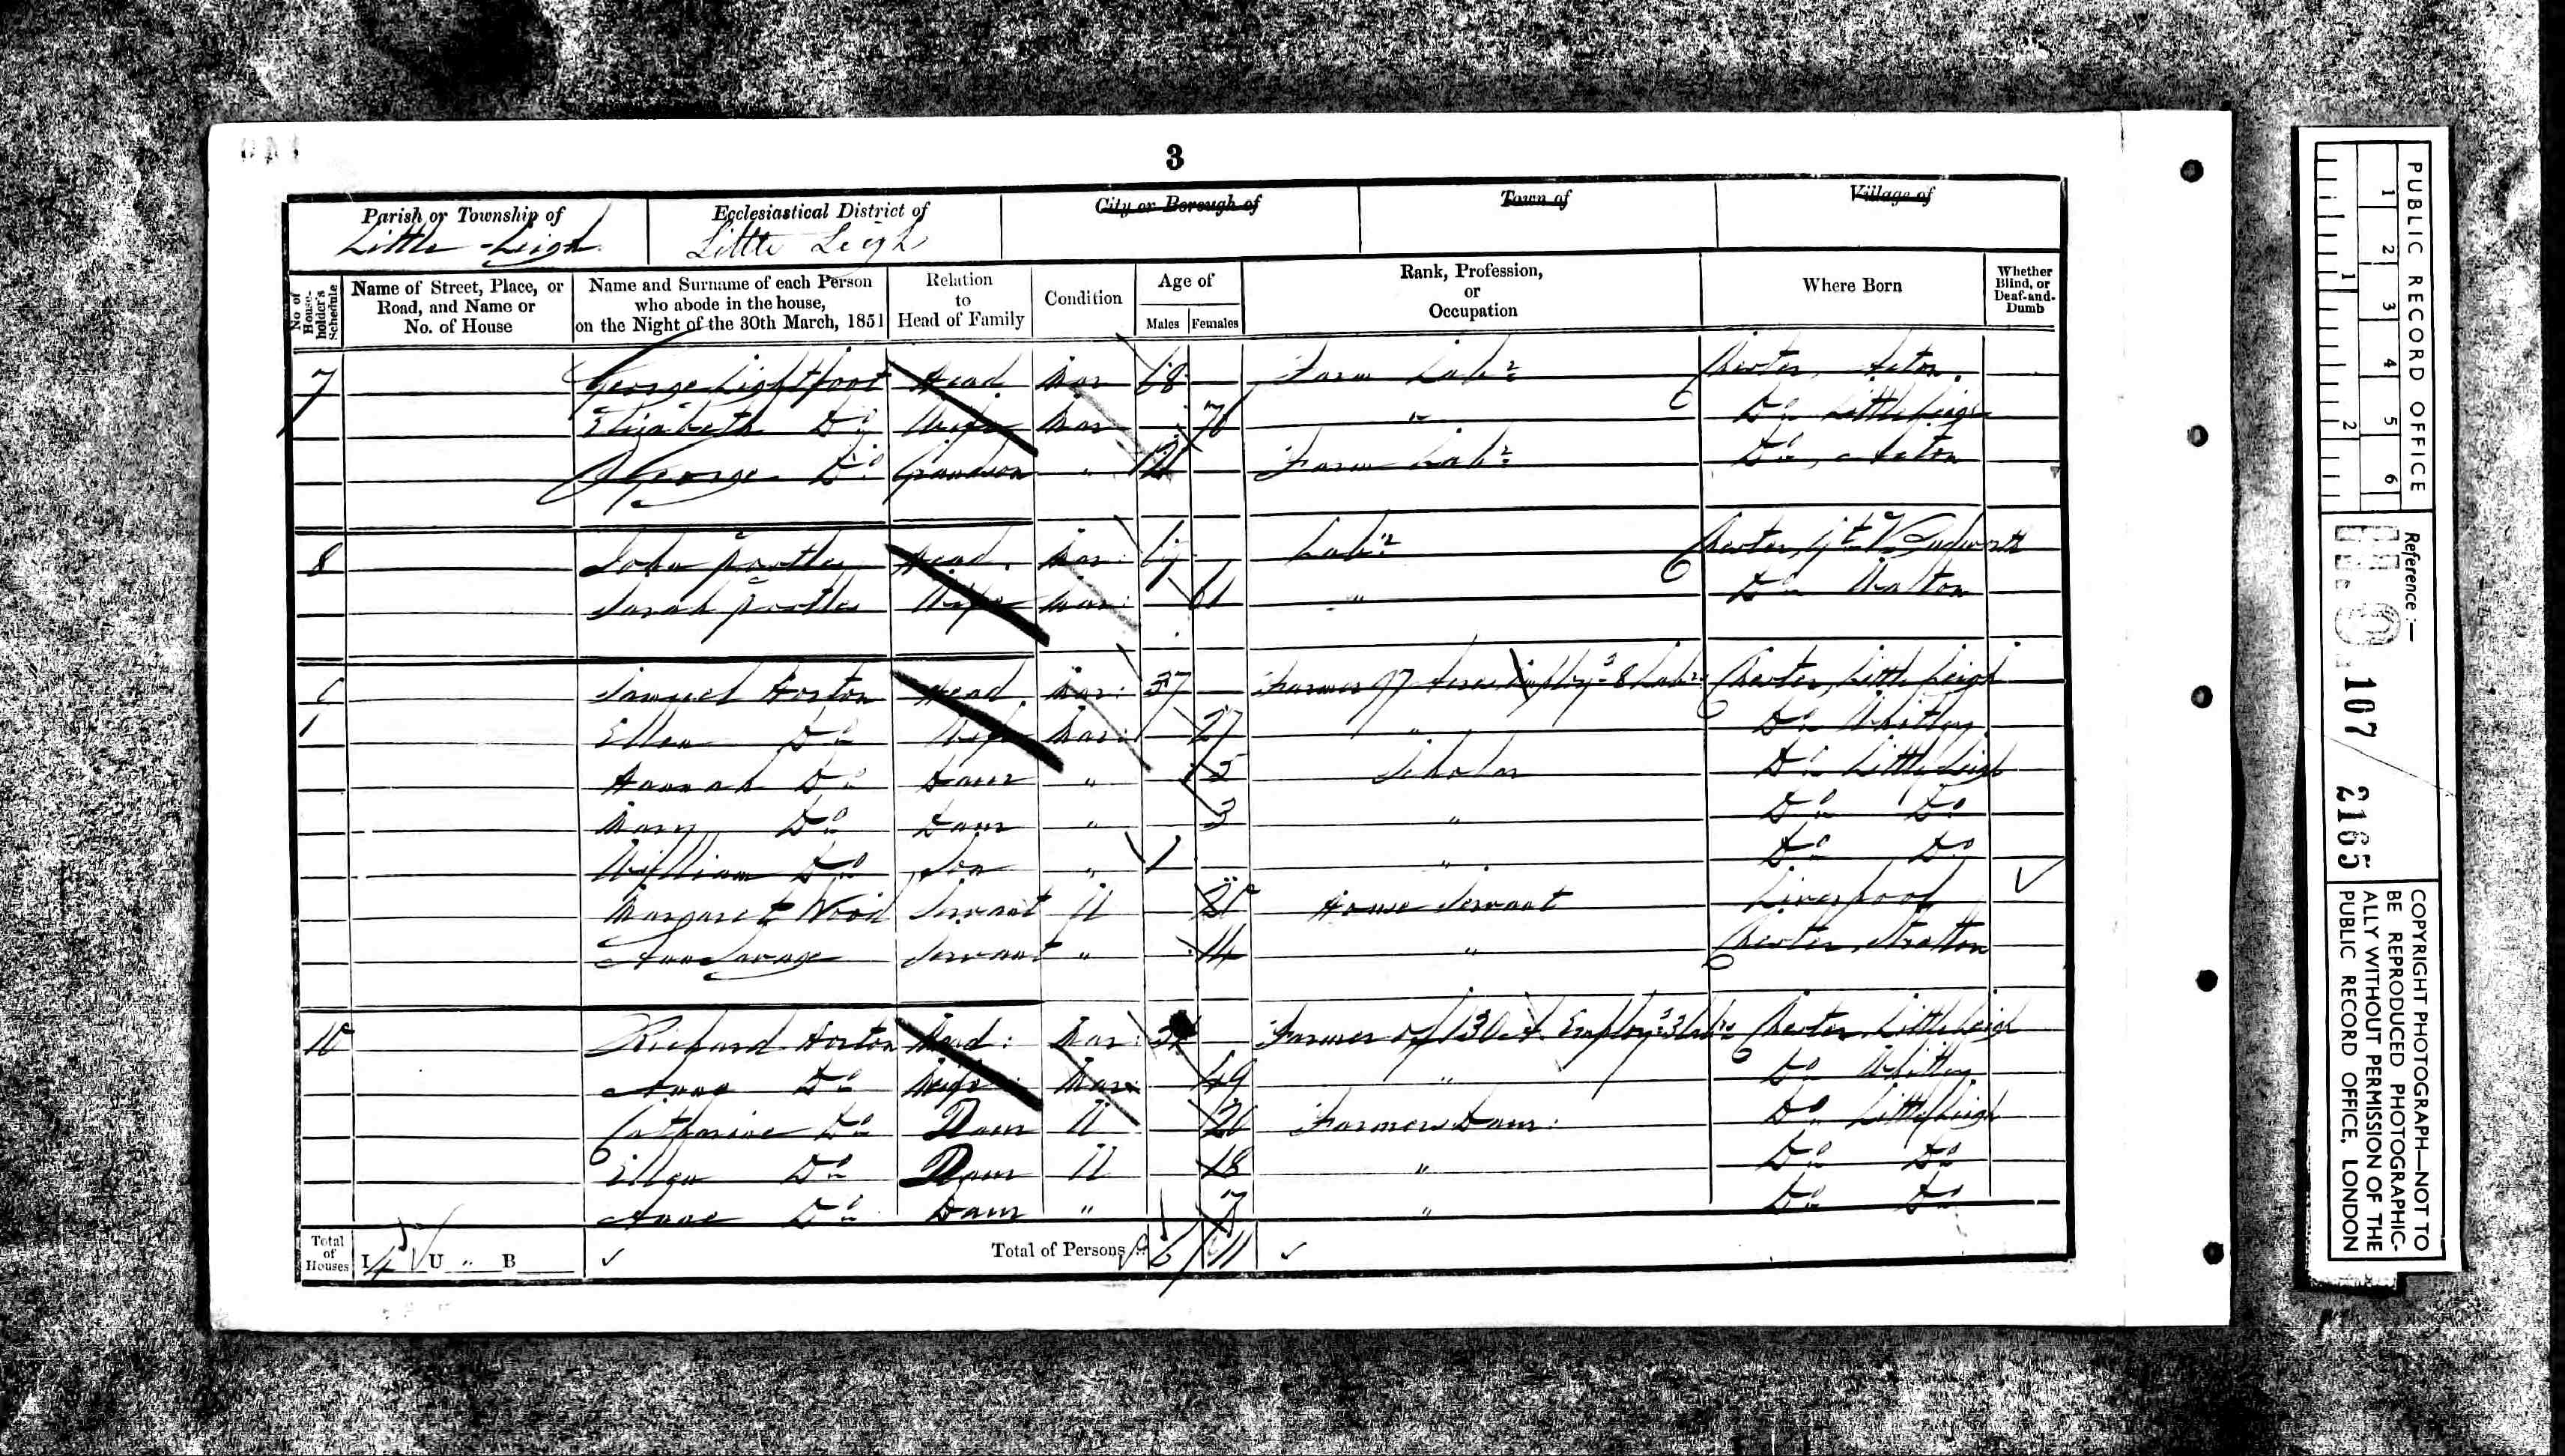 3
Parish or Township of
Little Leigh
Ecclesiastical District of
Little Leigh
City or Borough of
Town of
Village of
No. of House-holder's Schedule
Name of Street, Place, or Road, and Name or No. of House
Name and Surname of each Person who abode in the house, on the Night of the 30th March, 1851
Relation to Head of Family
Condition
Age of
Males Females
Rank, Profession, or Occupation
Where Born
Whether Blind, or Deaf-and-Dumb
7 George Lightfoot Head Mar 68 Farm Labr Chester, Acton.
Elizabeth Do Wife Mar 76 " Do Little Leigh
George Do Grandson " Farm Labr Do Acton
8 John Head Mar: Labr Chester, Gt Budworth
Sarah Wife Mar: 61 " Do Walton
9 Samuel Horton Head Mar: 37 Farmer 97 Acres Employs 8 Labrs Chester, Little Leigh
Ellen Do Wife Mar: 27 " Do Whitley
Hannah Do Daur " 5 Scholar Do Little Leigh
Mary Do Daur " 3 " Do Do
William Do Son " 1 " Do Do
Margaret Wood Servant U House Servant Liverpool
Ann Savage Servant " 14 " Chester, Stratton
10 Richard Horton Head: Mar: Farmer of 130 A. Employs 3 labrs Chester, Little Leigh
Anne Do Wife Mar: 49 " Do Whitley
Catharine Do Daur U Farmers Daur: Do Little Leigh
Ellen Do Daur U 18 " Do Do
Anne Do Daur " 7 " Do Do
Total of Houses I 4 U " B
Total of Persons 6 11
PUBLIC RECORD OFFICE
1 2 3 4 5 6
1 2
Reference:—
107 / 2165
COPYRIGHT PHOTOGRAPH—NOT TO
BE REPRODUCED PHOTOGRAPHIC-
ALLY WITHOUT PERMISSION OF THE
PUBLIC RECORD OFFICE, LONDON